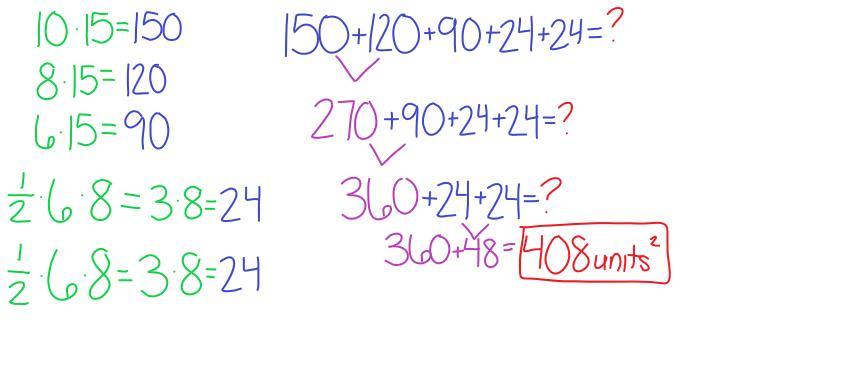 10·15=150
8·15=120
6·15=90
1/2·6·8=3·8=24
1/2·6·8=3·8=24
150+120+90+24+24=?
270+90+24+24=?
360+24+24=?
360+48=408units²